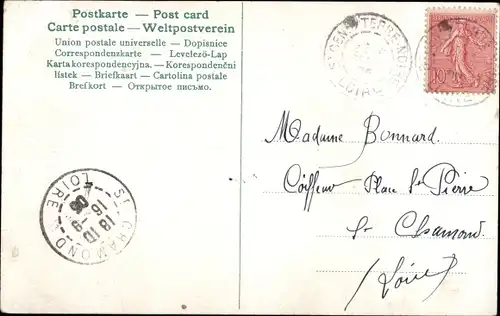 Postkarte — Post card
Carte postale — Weltpostverein
Union postale universelle — Dopisnice
Correspondenzkarte — Levelező-Lap
Karta korespondencyjna. — Korespondenční
lístek — Briefkaart — Cartolina postale
Brefkort — Открытое письмо.
10
Madame Bonnard
Coiffeur Place St Pierre
St Chamond
(Loire)
ST CHAMOND
LOIRE